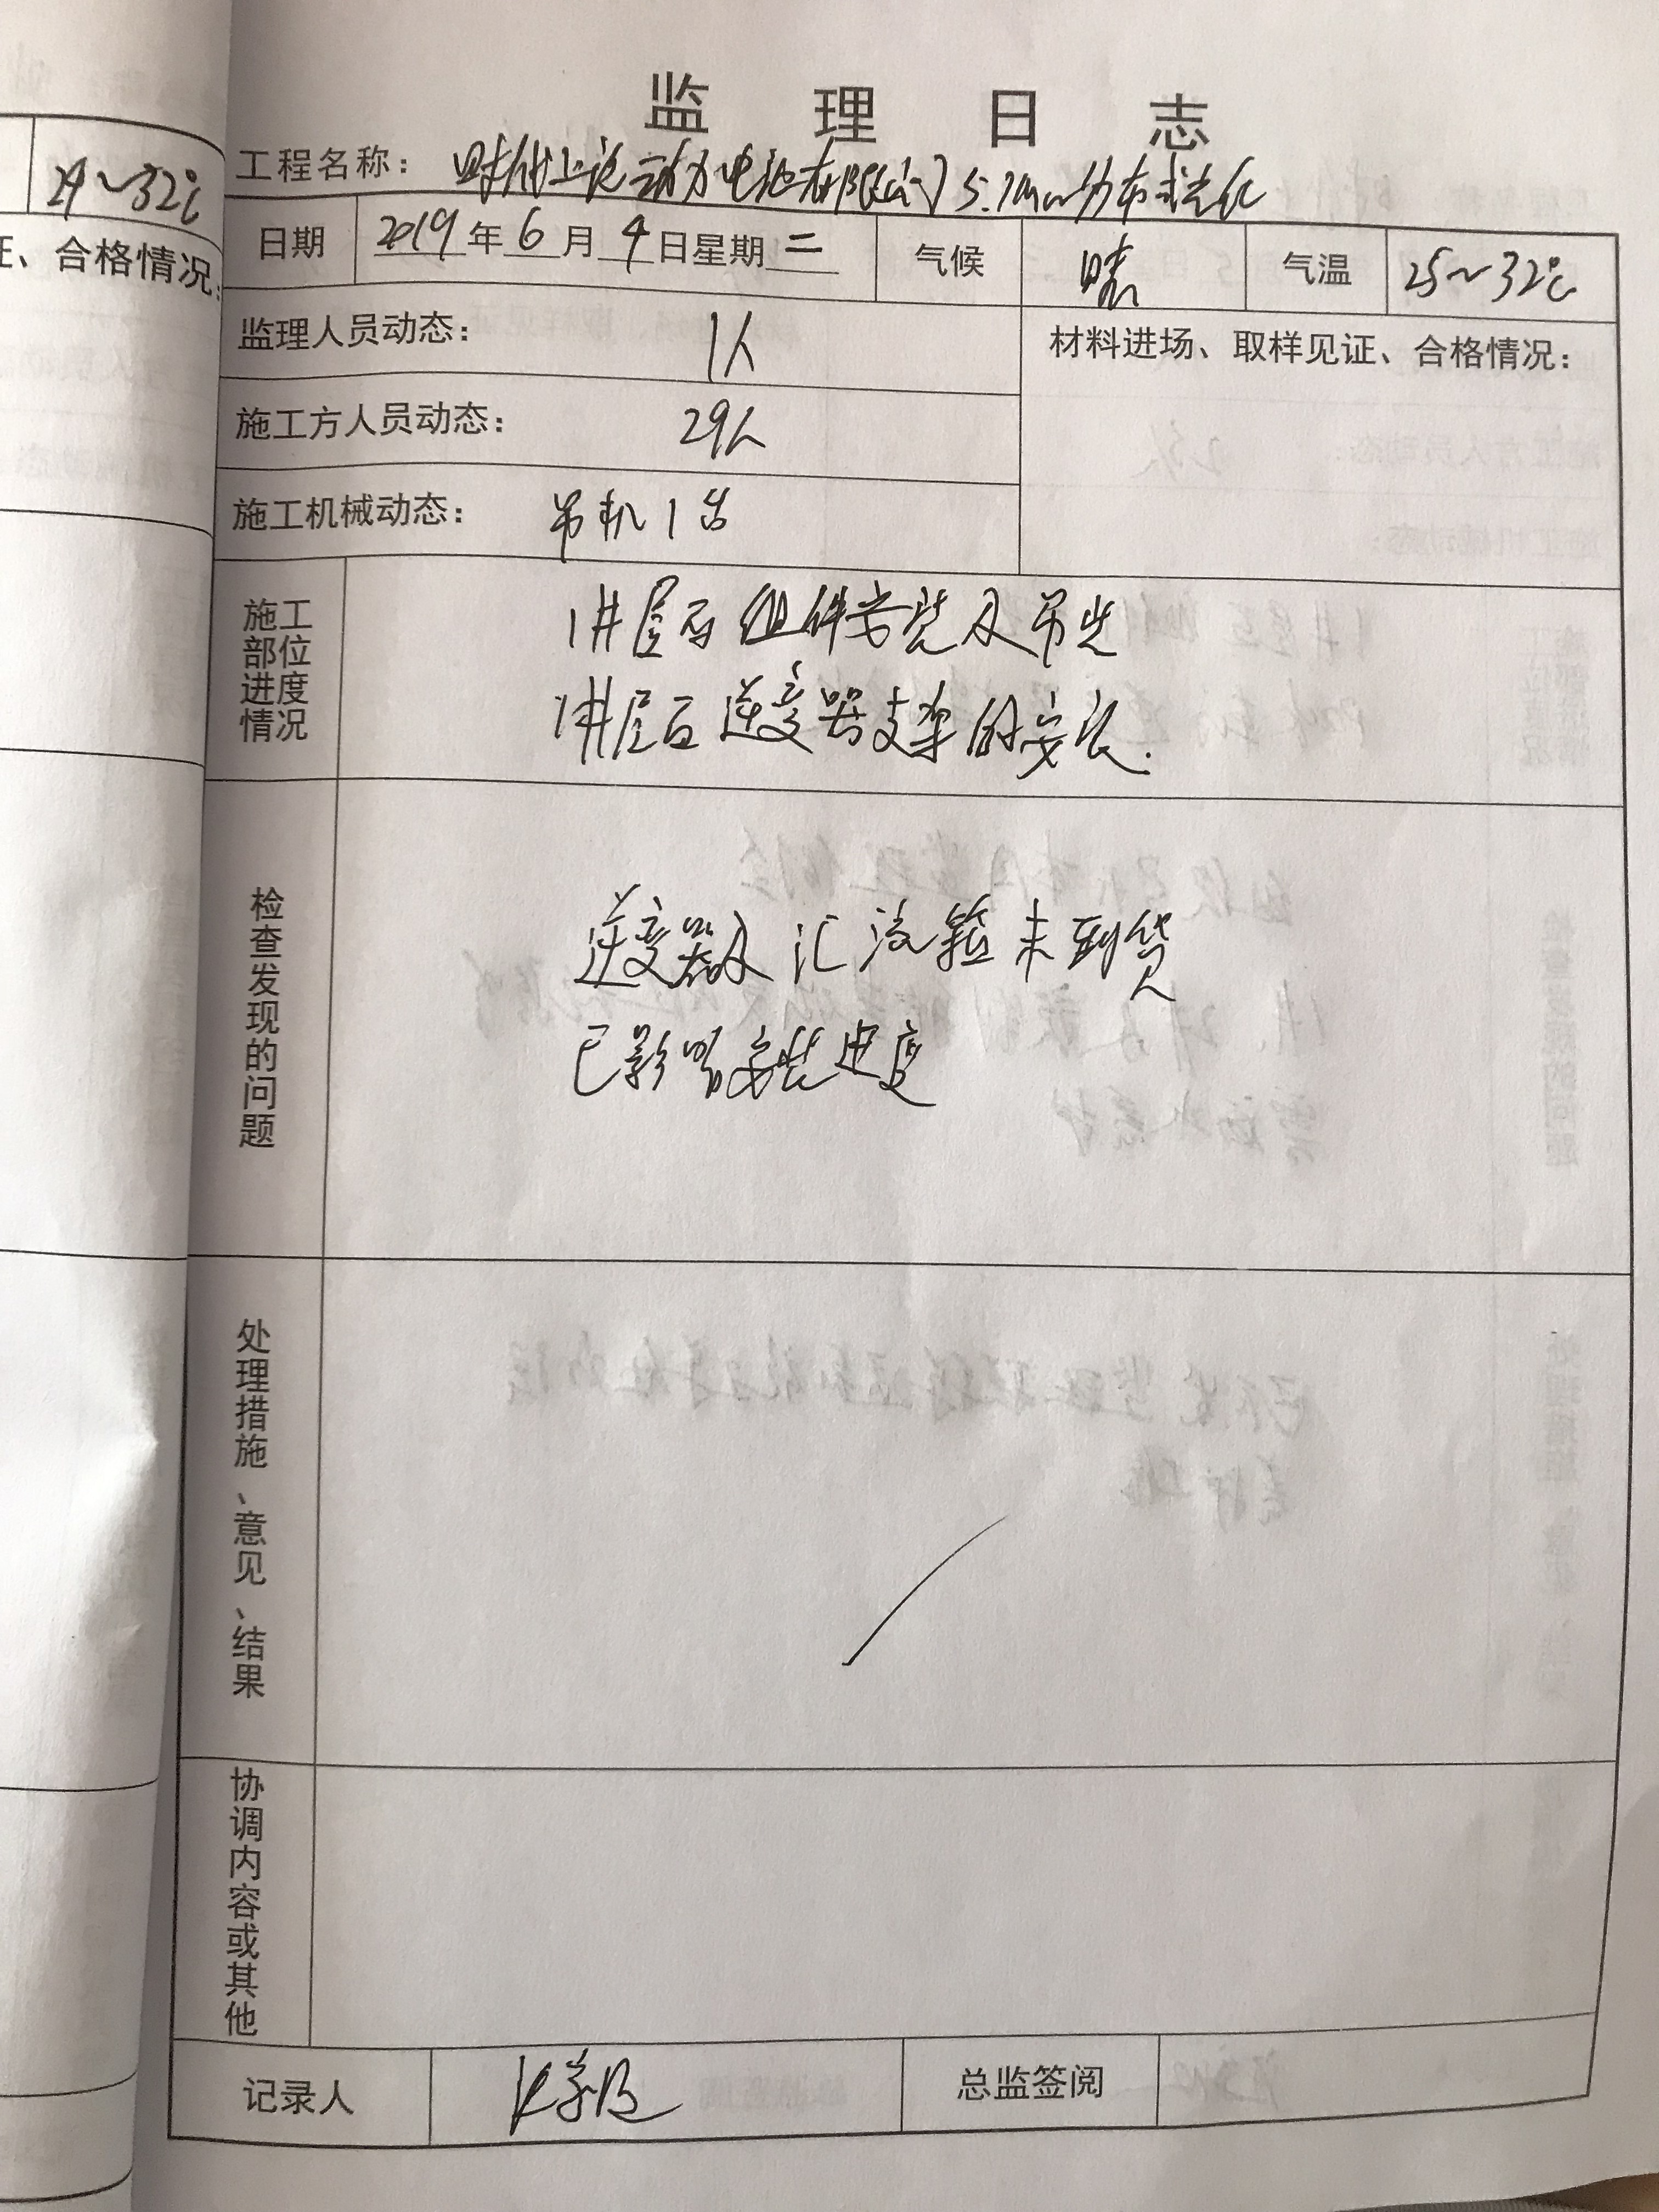 24~32℃
证、合格情况:
监理日志
工程名称: 时代上汽动力电池有限公司5.7mw分布式光伏
日期 2019年6月4日星期二 气候 晴 气温 25~32℃
监理人员动态: 1人 材料进场、取样见证、合格情况:
施工方人员动态: 29人
施工机械动态: 吊机1台
施工部位进度情况
1#屋面组件安装及吊装
1#屋面逆变器支架的安装.
检查发现的问题
逆变器及汇流箱未到货
已影响安装进度
处理措施、意见、结果
协调内容或其他
记录人 总监签阅